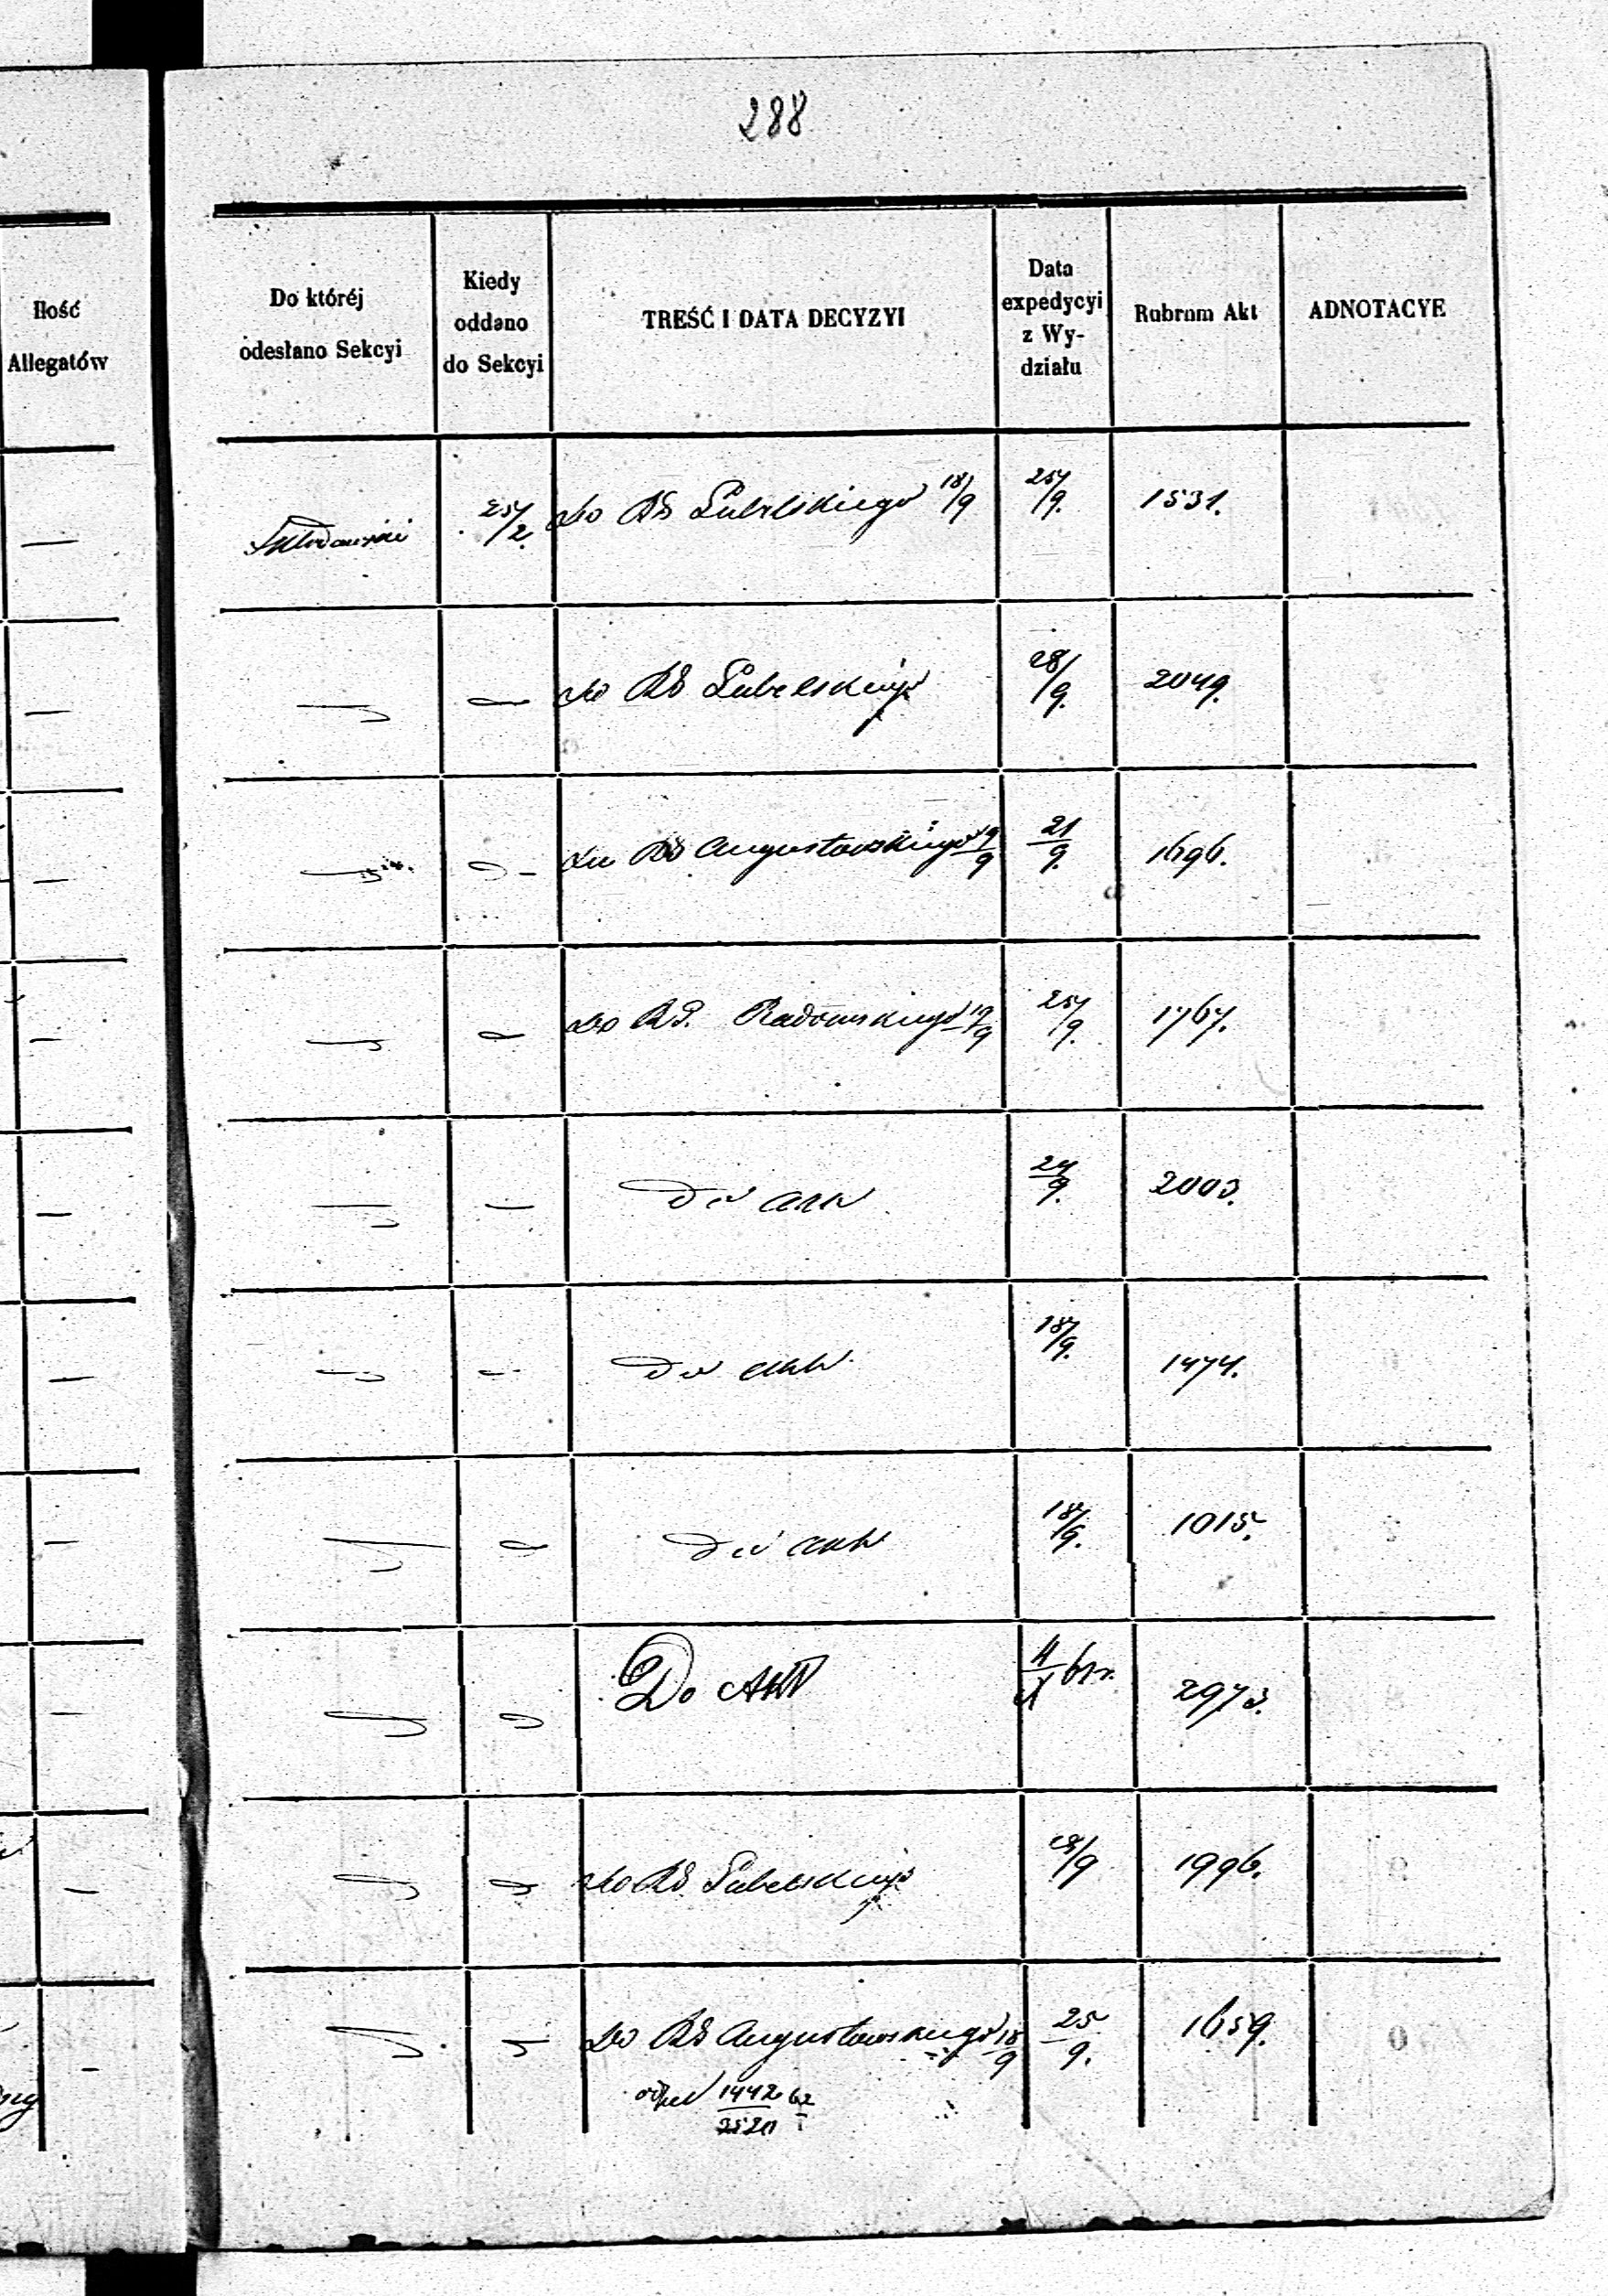 288
Ilość
Allegatów
Do któréj
odesłano Sekcyi
Kiedy
oddano
do Sekcyi
TREŚĆ I DATA DECYZYI
Data
expedycyi
z Wy-
działu
Rubrum Akt
ADNOTACYE
do RG Lubelskiego 18/9 25/9. 1531.
do RG Lubelskiego 28/9. 2049.
do RG Augustowskiego 19/9 21/9. 1696.
do RG. Radomskiego 19/9 25/9. 1767.
Do akt 24/9. 2003.
Do akt 18/9. 1474.
Do akt 18/9. 1015.
Do Akt 4/X 2973.
do RG Lubelskiego 28/9 1996.
Do RG Augustowskiego 18/9 25/9. 1659.
1442 62
2520 1